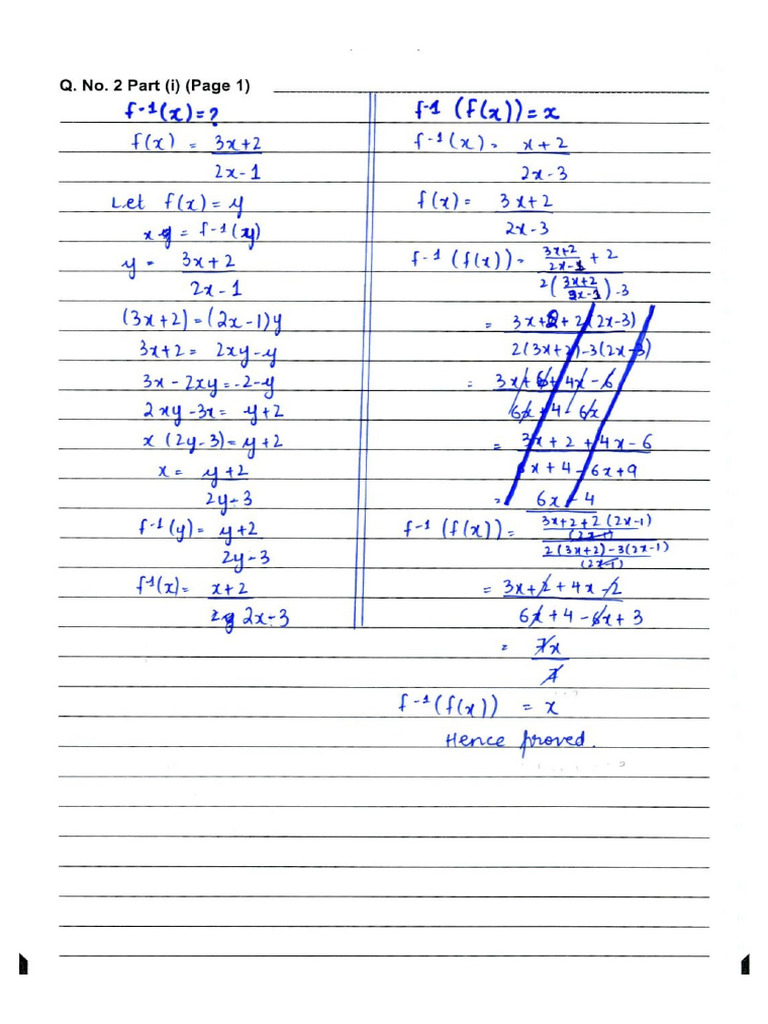 Q. No. 2 Part (i) (Page 1)
f-1(x)=?
f(x) = 3x+2
2x-1
Let f(x)=y
x = f-1(y)
y = 3x+2
2x-1
(3x+2)=(2x-1)y
3x+2= 2xy-y
3x-2xy=-2-y
2xy-3x= y+2
x(2y-3)=y+2
x= y+2
2y-3
f-1(y)= y+2
2y-3
f-1(x)= x+2
2x-3
f-1 (f(x))=x
f-1(x)= x+2
2x-3
f(x)= 3x+2
2x-3
f-1(f(x))= 3x+2 + 2
2x-1
2(3x+2)-3
2x-1
= 3x+2+2(2x-3)
2(3x+2)-3(2x-3)
= 3x+6+4x-6
6x+4-6x
= 3x+2+4x-6
6x+4-6x+9
= 6x-4
f-1(f(x))= 3x+2+2(2x-1)
(2x-1)
2(3x+2)-3(2x-1)
(2x-1)
= 3x+2+4x-2
6x+4-6x+3
= 7x
7
f-1(f(x)) = x
Hence proved.